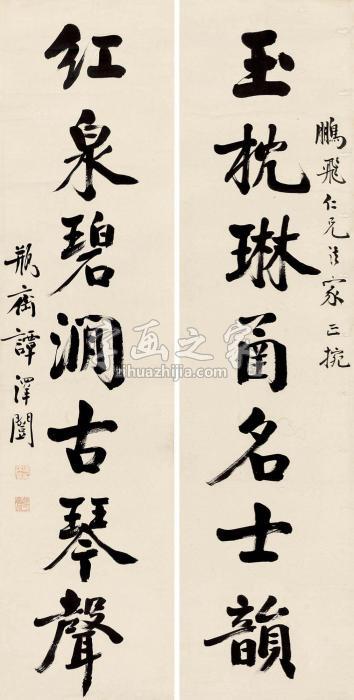 鵬飛仁兄法家正捥
玉枕琳圅名士韻
紅泉碧澗古琴聲
瓶齋譚澤闓
字画之家
zihuazhijia.com